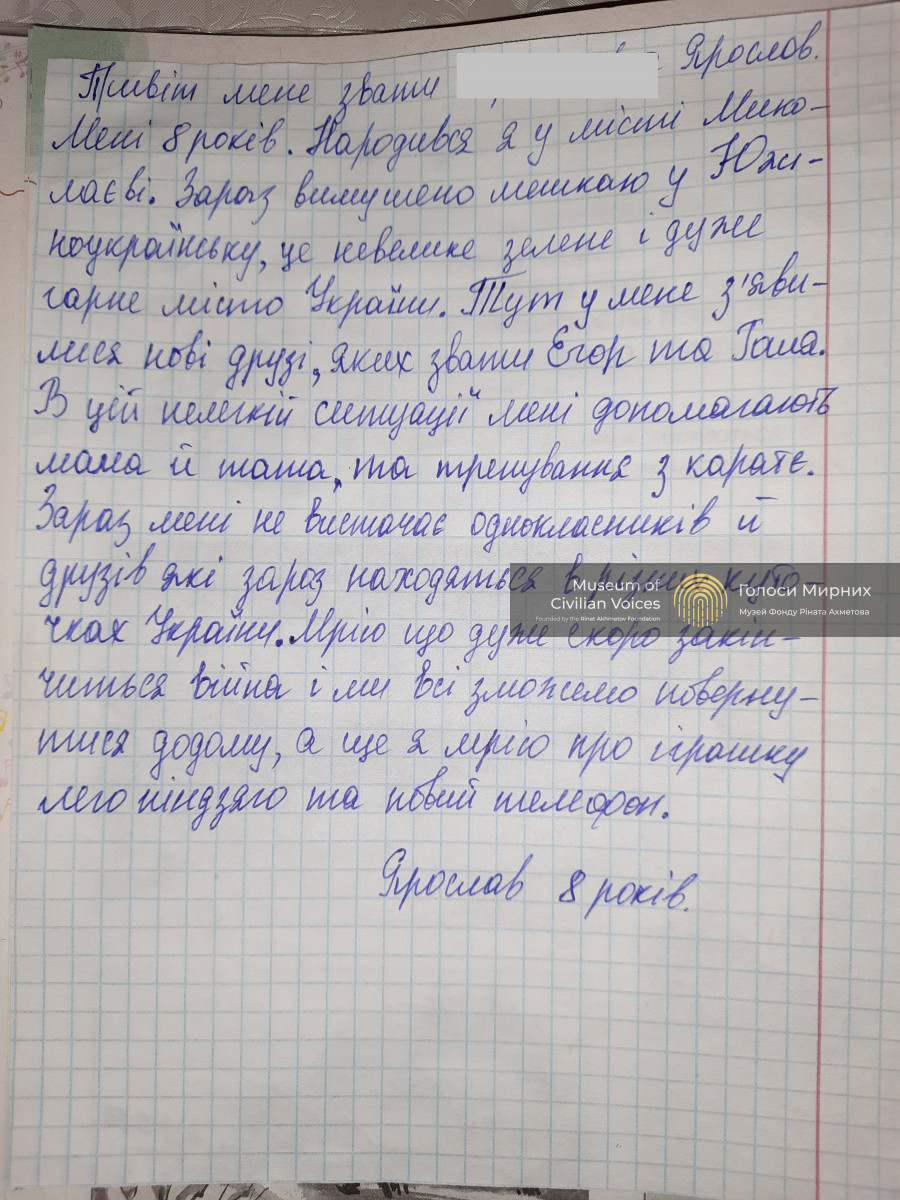 Привіт мене звати Ярослав.
Мені 8 років. Народився я у місті Мико-
лаєві. Зараз вимушено мешкаю у Южн-
ноукраїнську, це невелике зелене і дуже
гарне місто України. Тут у мене з'яви-
лися нові друзі, яких звати Єгор та
В цій нелегкій ситуації мені допомагають
мама й тато, та тренування з карате.
Зараз мені не вистачає однокласників й
друзів які зараз находяться в різних куто-
чках України. Мрію що дуже скоро закін-
читься війна і ми всі зможемо поверну-
тися додому, а ще я мрію про іграшку
лего ніндзяго та новий телефон.
Ярослав 8 років.
Museum of
Civilian Voices
Founded by the Rinat Akhmetov Foundation
Голоси Мирних
Музей Фонду Ріната Ахметова